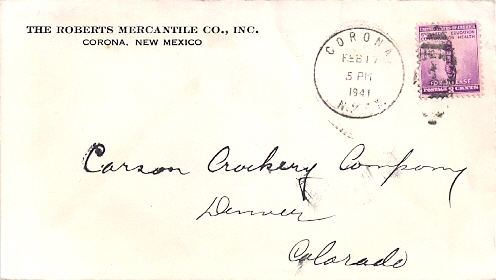 THE ROBERTS MERCANTILE CO., INC.
CORONA, NEW MEXICO
CORONA
FEB 17
5 PM
1941
N. MEX.
EDUCATION
HEALTH
FOR DEFENSE
POSTAGE 3 CENTS
Carson Crockery Company
Denver
Colorado